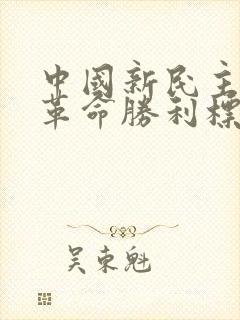 中國新民主
革命勝利標
吴東魁